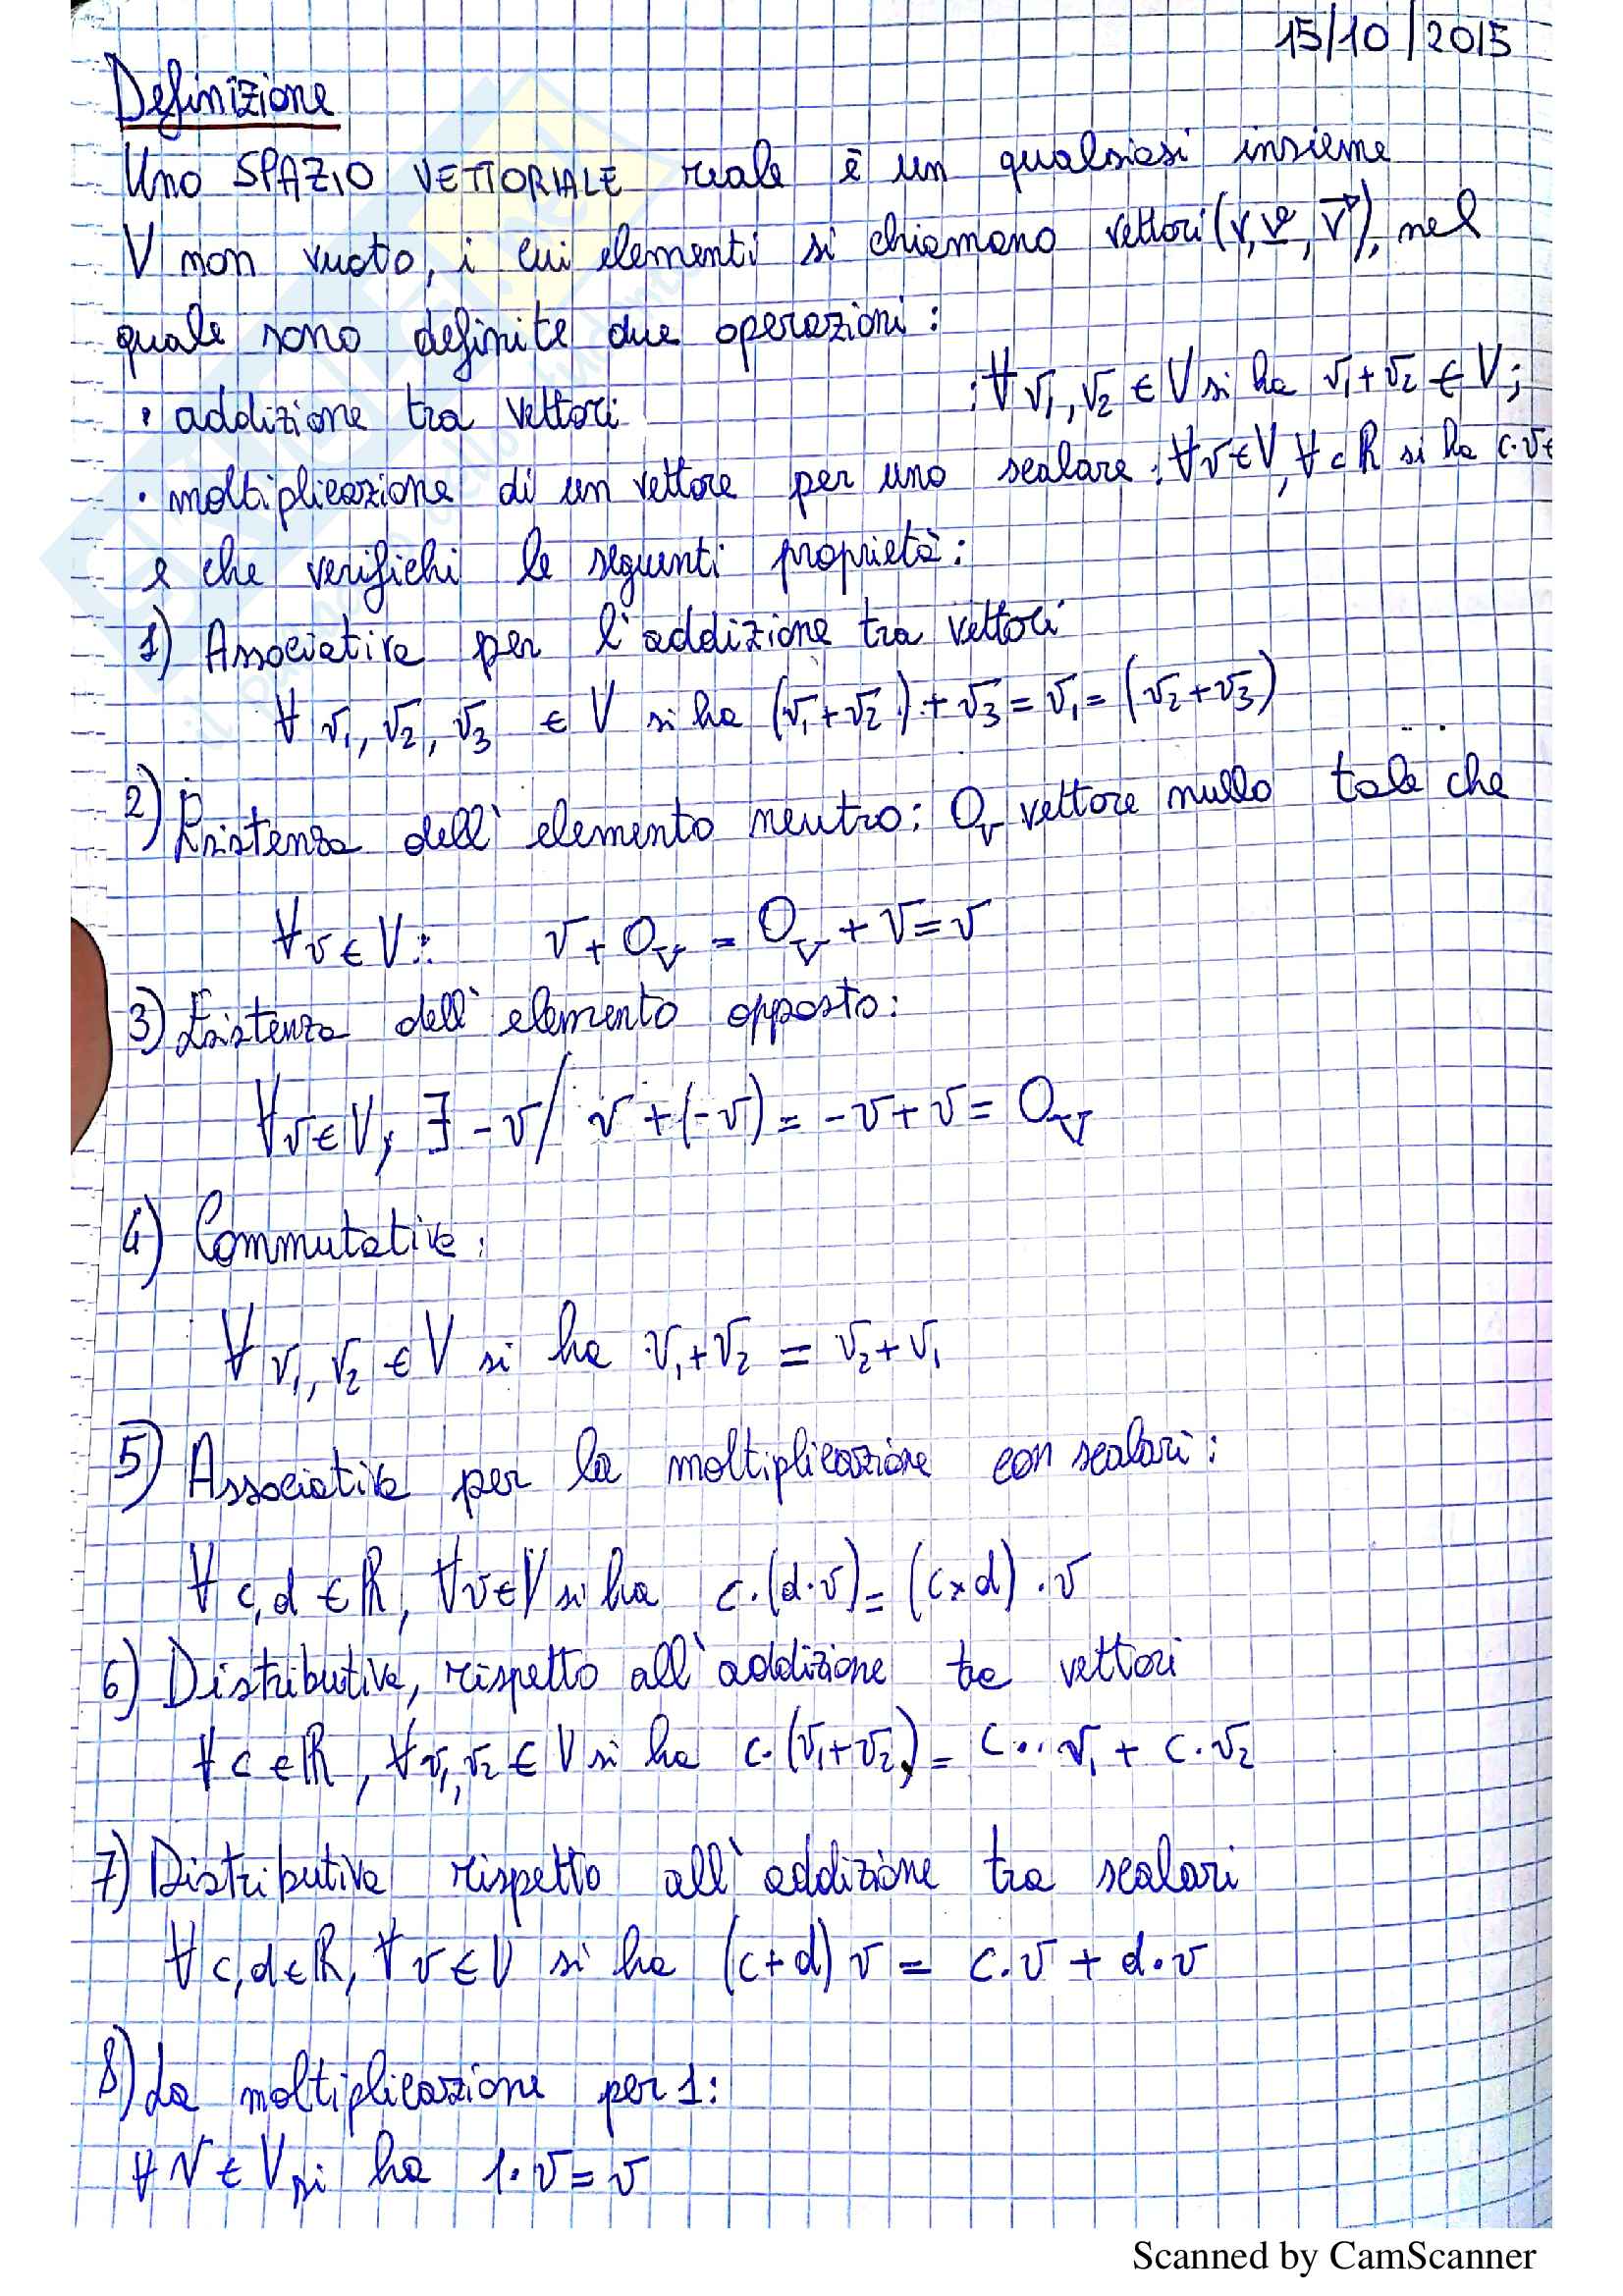 15/10/2015
Definizione
Uno SPAZIO VETTORIALE reale è un qualsiasi insieme
V non vuoto, i cui elementi si chiamano vettori (v, v, v⃗), nel
quale sono definite due operazioni:
• addizione tra vettori : ∀ v₁, v₂ ∈ V si ha v₁+v₂ ∈ V;
• moltiplicazione di un vettore per uno scalare: ∀v∈V, ∀ c R si ha c·v∈
e che verifichi le seguenti proprietà:
1) Associativa per l'addizione tra vettori
∀ v₁, v₂, v₃ ∈ V si ha (v₁+v₂)+v₃=v₁=(v₂+v₃)
2) Esistenza dell'elemento neutro: O_V vettore nullo tale che
∀v∈V: v+O_V = O_V+v=v
3) Esistenza dell'elemento opposto:
∀v∈V, ∃ -v/ v+(-v)=-v+v=O_V
4) Commutativa:
∀ v₁, v₂ ∈ V si ha v₁+v₂ = v₂+v₁
5) Associativa per la moltiplicazione con scalari:
∀ c,d ∈ R, ∀v∈V si ha c·(d·v)=(c×d)·v
6) Distributiva, rispetto all'addizione tra vettori
∀ c∈R, ∀v₁,v₂ ∈ V si ha c·(v₁+v₂)= c·v₁ + c·v₂
7) Distributiva rispetto all'addizione tra scalari
∀ c,d∈R, ∀ v∈V si ha (c+d) v = c·v + d·v
8) La moltiplicazione per 1:
∀ v∈V si ha 1·v=v
Scanned by CamScanner